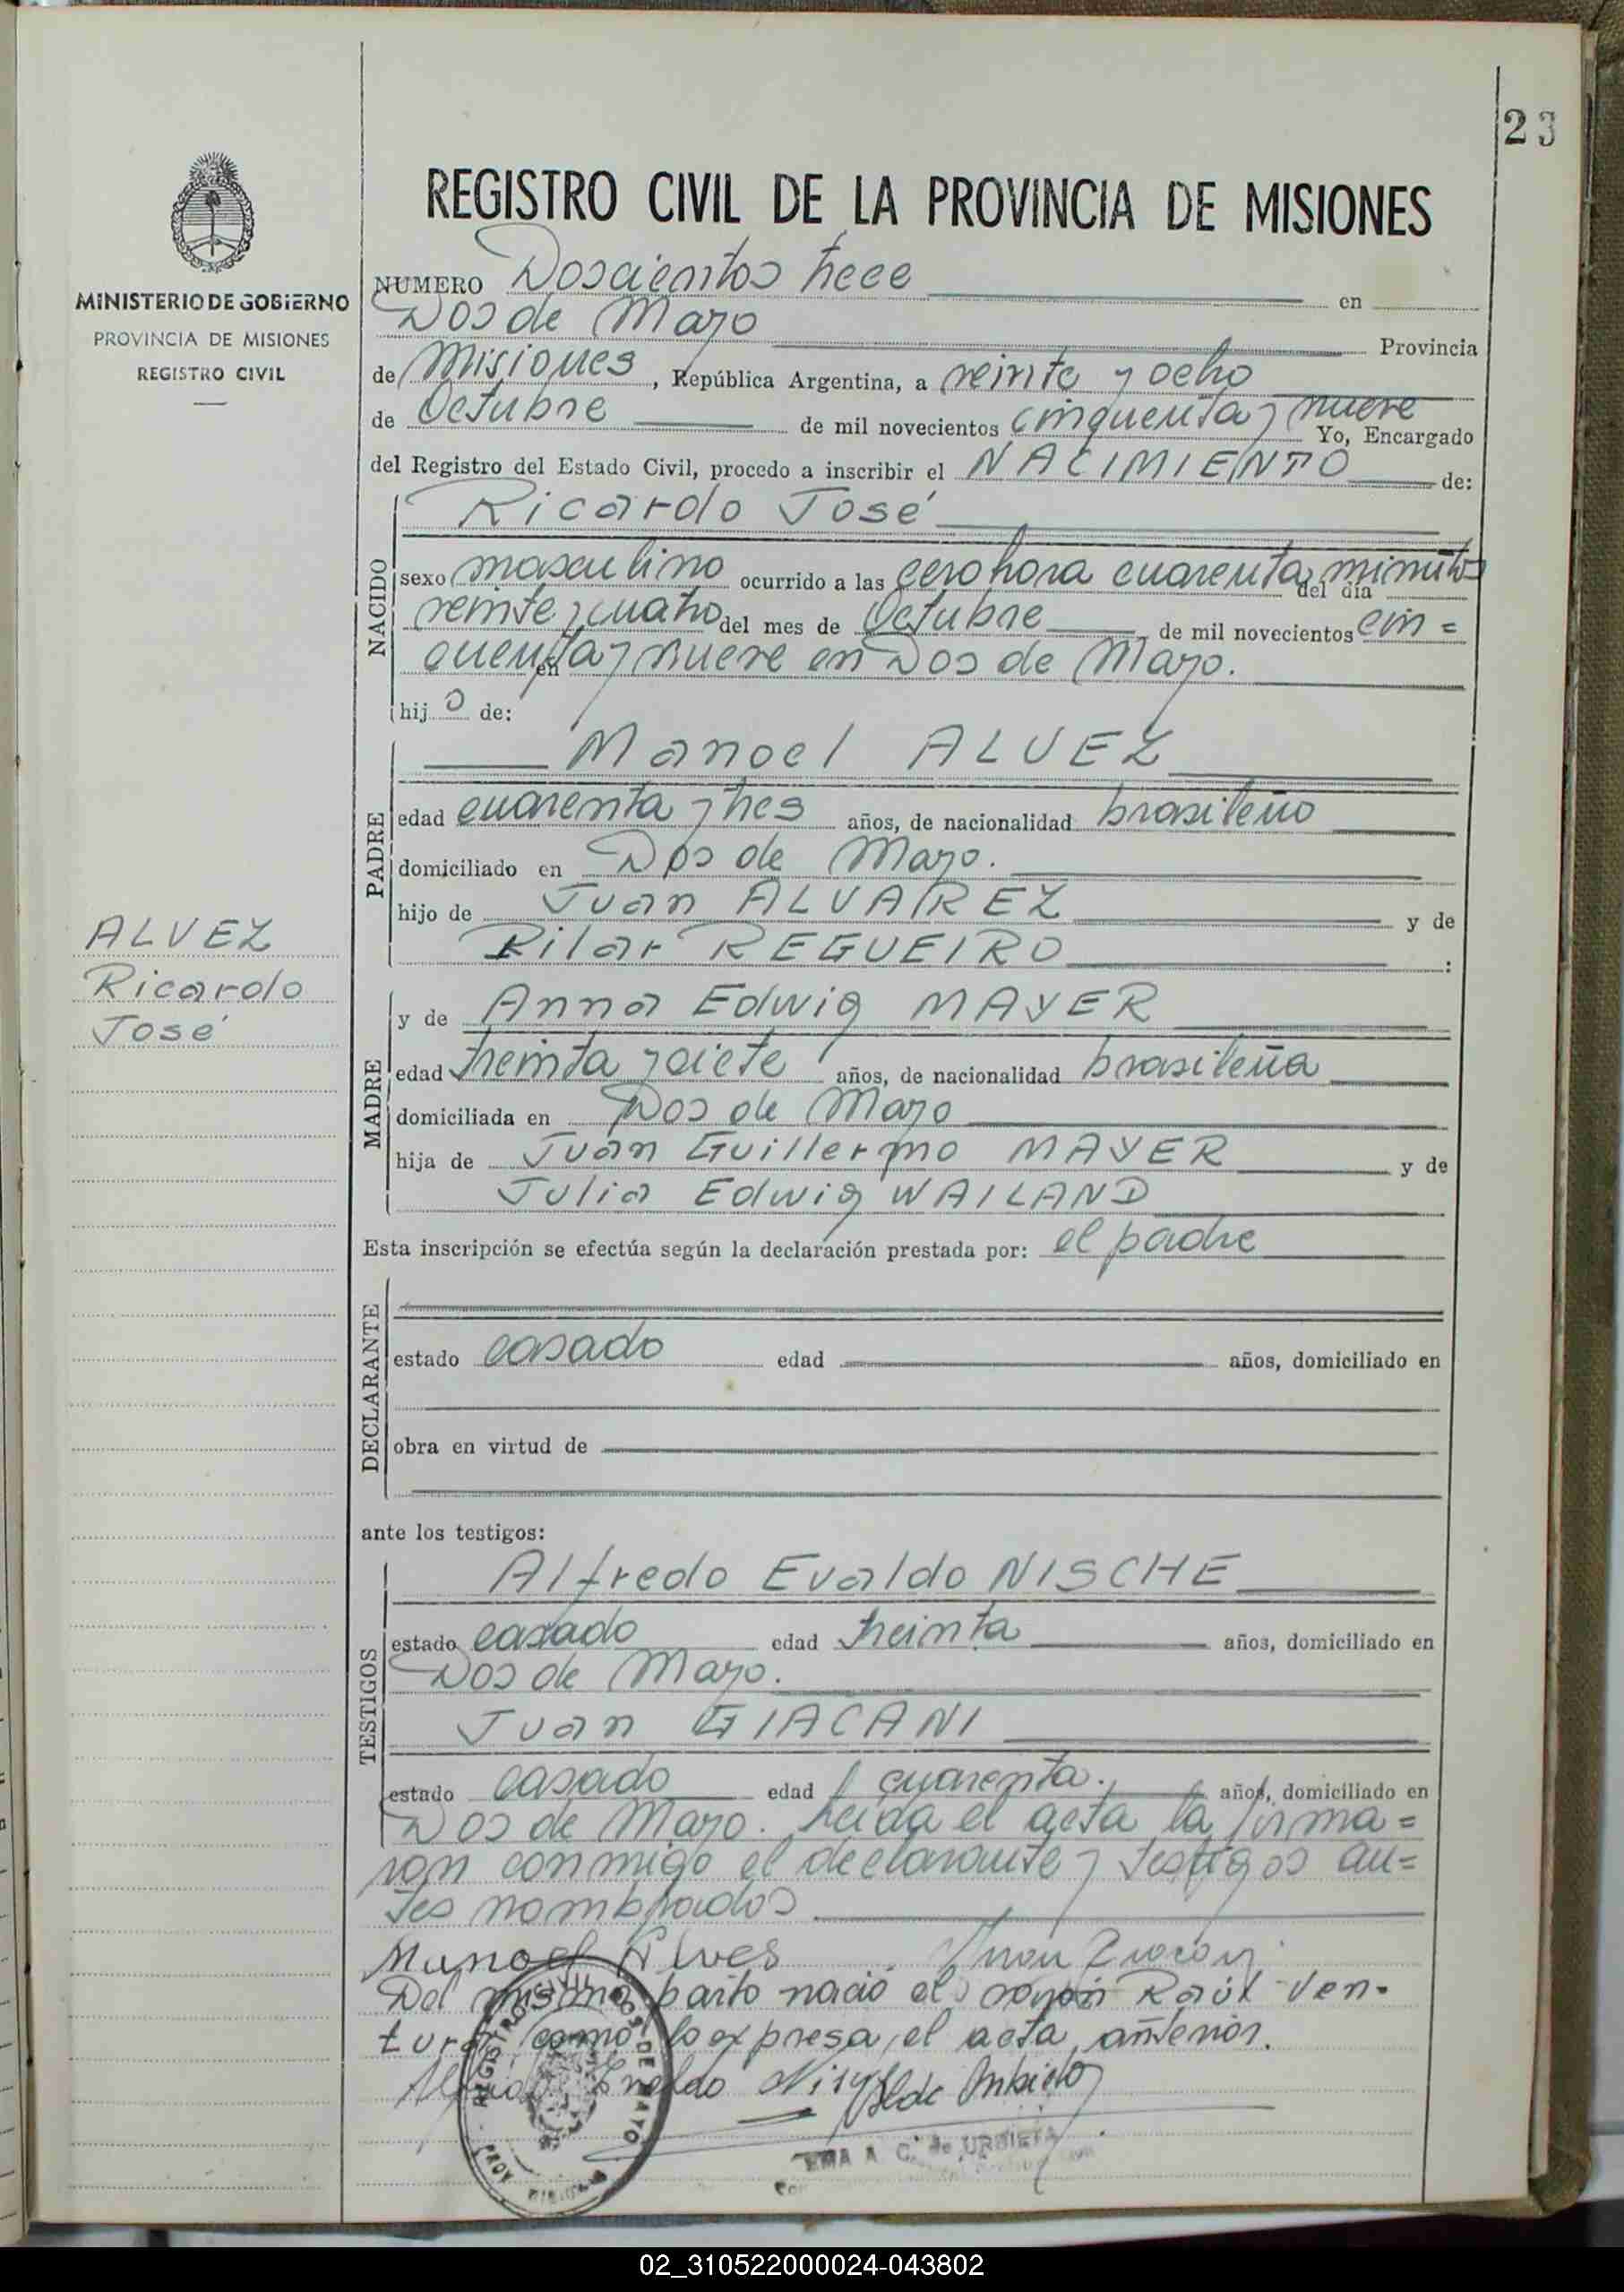 23
MINISTERIO DE GOBIERNO
PROVINCIA DE MISIONES
REGISTRO CIVIL
REGISTRO CIVIL DE LA PROVINCIA DE MISIONES
NUMERO Doscientos trece en
Dos de Mayo Provincia
de Misiones, República Argentina, a veinte y ocho
de Octubre de mil novecientos cinquenta y nueve Yo, Encargado
del Registro del Estado Civil, procedo a inscribir el NACIMIENTO de:
NACIDO
Ricardo José
sexo masculino ocurrido a las cero hora cuarenta minutos del día
veinte y cuatro del mes de Octubre de mil novecientos cin=
cuenta y nueve en Dos de Mayo.
hijo de:
PADRE
Manoel ALVEZ
edad cuarenta y tres años, de nacionalidad brasileño
domiciliado en Dos de Mayo.
hijo de Juan ALVAREZ y de
Pilar REGUEIRO :
ALVEZ
Ricardo
José
MADRE
y de Anna Edwig MAYER
edad treinta y siete años, de nacionalidad brasileña
domiciliada en Dos de Mayo
hija de Juan Guillermo MAYER y de
Julia Edwig WAILAND
Esta inscripción se efectúa según la declaración prestada por: el padre
DECLARANTE
estado casado edad años, domiciliado en
obra en virtud de
ante los testigos:
TESTIGOS
Alfredo Evaldo NISCHE
estado casado edad treinta años, domiciliado en
Dos de Mayo.
Juan GIACANI
estado casado edad cuarenta. años, domiciliado en
Dos de Mayo. Leida el acta la firma=
ron conmigo el declarante y testigos an=
tes nombrados
Manoel Alves Juan
Del mismo parto nació el varón Raúl Ven-
tura, como lo expresa el acta anterior.
Evaldo
REGISTRO CIVIL DOS DE MAYO
PROV. MISIONES
EMA A. C. de URBIETA
02_310522000024-043802